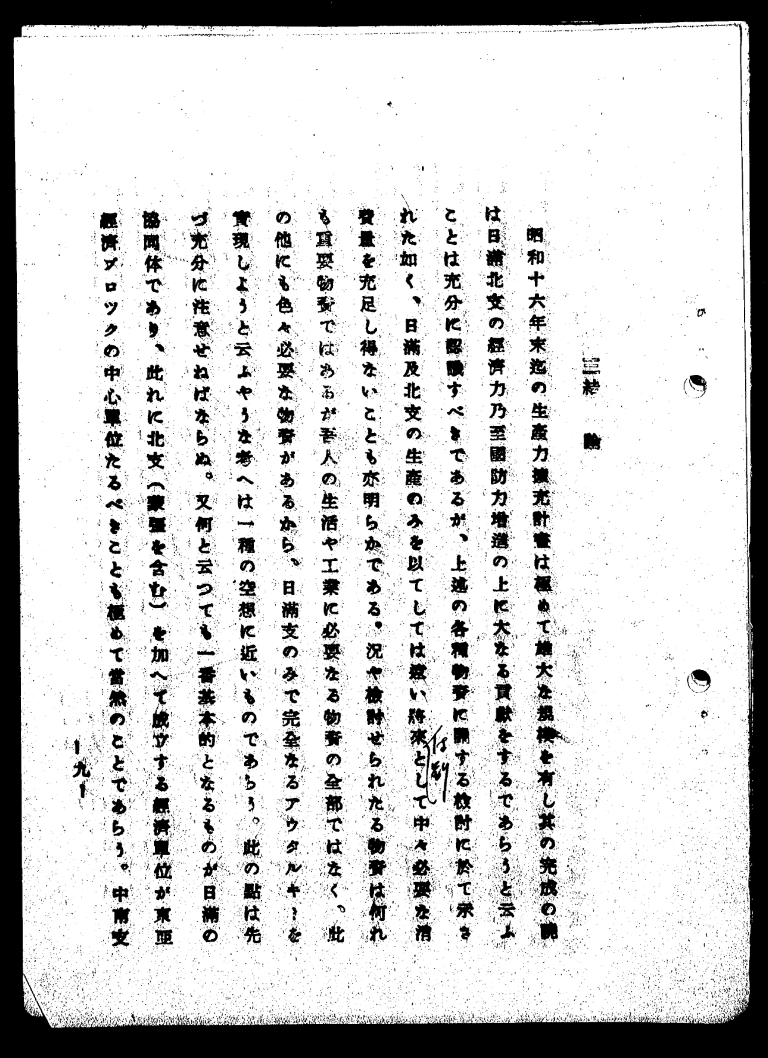 三 結論
昭和十六年末迄の生產力擴充計畫は極めて雄大な規模を有し其の完成の曉
は日滿北支の經濟力乃至國防力增進の上に大なる貢獻をするであらうと云ふ
ことは充分に認識すべきであるが、上述の各種物資に關する檢討に於て示さ
れた如く、日滿及北支の生產のみを以てしては遠い將來として中々必要な消
費量を充足し得ないことも亦明らかである。況や檢討せられたる物資は何れ
も重要物資ではあるが吾人の生活や工業に必要なる物資の全部ではなく。此
の他にも色々必要な物資があるから、日滿支のみで完全なるアウタルキーを
實現しようと云ふやうな考へは一種の空想に近いものであらう。此の點は先
づ充分に注意せねばならぬ。又何と云つても一番基本的となるものが日滿の
協同体であり、此れに北支（蒙疆を含む）を加へて成立する經濟單位が東亞
經濟ブロツクの中心單位たるべきことも極めて當然のことであらう。中南支
ー九ー